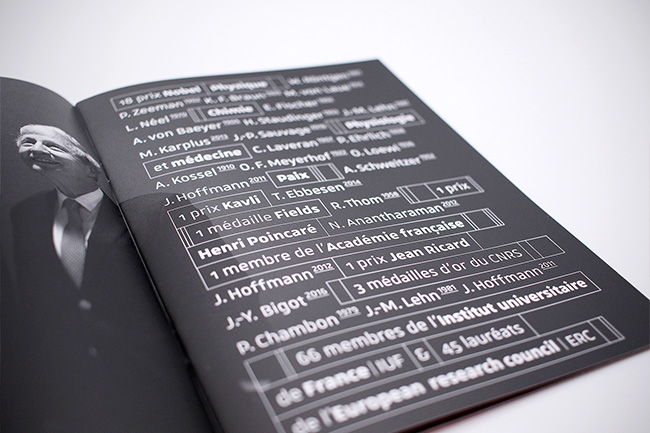 18 prix Nobel Physique W. Röntgen
P. Zeeman K. F. Braun M. von Laue
L. Néel 1970 Chimie E. Fischer
A. von Baeyer H. Staudinger J.-M. Lehn
M. Karplus 2013 J.-P. Sauvage Physiologie
et médecine C. Laveran P. Ehrlich
A. Kossel 1910 O. F. Meyerhof O. Loewi
J. Hoffmann 2011 Paix A. Schweitzer
1 prix Kavli T. Ebbesen 2014
1 médaille Fields R. Thom 1958 1 prix
Henri Poincaré N. Anantharaman 2012
1 membre de l'Académie française
J. Hoffmann 2012 1 prix Jean Ricard
J.-Y. Bigot 2016 3 médailles d'or du CNRS
P. Chambon 1979 J.-M. Lehn 1981 J. Hoffmann 2011
66 membres de l'institut universitaire
de France | IUF & 45 lauréats
de l'European research council | ERC